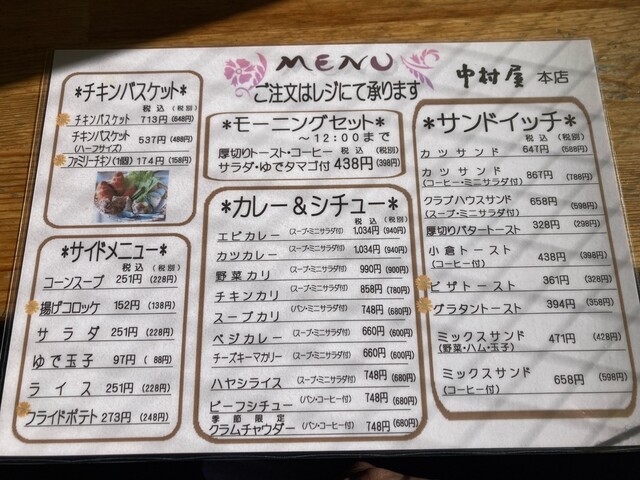 MENU
中村屋 本店
ご注文はレジにて承ります
*チキンバスケット*
税込 (税別)
チキンバスケット 713円 (648円)
チキンバスケット (ハーフサイズ) 537円 (488円)
ファミリーチキン(1個) 174円 (158円)
*サイドメニュー*
税込 (税別)
コーンスープ 251円 (228円)
揚げコロッケ 152円 (138円)
サラダ 251円 (228円)
ゆで玉子 97円 (88円)
ライス 251円 (228円)
フライドポテト 273円 (248円)
*モーニングセット*
～12:00まで
厚切りトースト・コーヒー 税込 (税別)
サラダ・ゆでタマゴ付 438円 (398円)
*カレー&シチュー*
税込 (税別)
エビカレー (スープ・ミニサラダ付) 1,034円 (940円)
カツカレー (スープ・ミニサラダ付) 1,034円 (940円)
野菜カリー (スープ・ミニサラダ付) 990円 (900円)
チキンカリー (スープ・ミニサラダ付) 858円 (780円)
スープカリー (パン・ミニサラダ付) 748円 (680円)
ベジカレー (スープ・ミニサラダ付) 660円 (600円)
チーズキーマカリー (スープ・ミニサラダ付) 660円 (600円)
ハヤシライス (スープ・ミニサラダ付) 748円 (680円)
ビーフシチュー (パン・コーヒー付) 748円 (680円)
季節限定
クラムチャウダー (パン・コーヒー付) 748円 (680円)
*サンドイッチ*
税込 (税別)
カツサンド 647円 (588円)
カツサンド (コーヒー・ミニサラダ付) 867円 (788円)
クラブハウスサンド (スープ・ミニサラダ付) 658円 (598円)
厚切りバタートースト 328円 (298円)
小倉トースト (コーヒー付) 438円 (398円)
ピザトースト 361円 (328円)
グラタントースト 394円 (358円)
ミックスサンド (野菜・ハム・玉子) 471円 (428円)
ミックスサンド (コーヒー付) 658円 (598円)